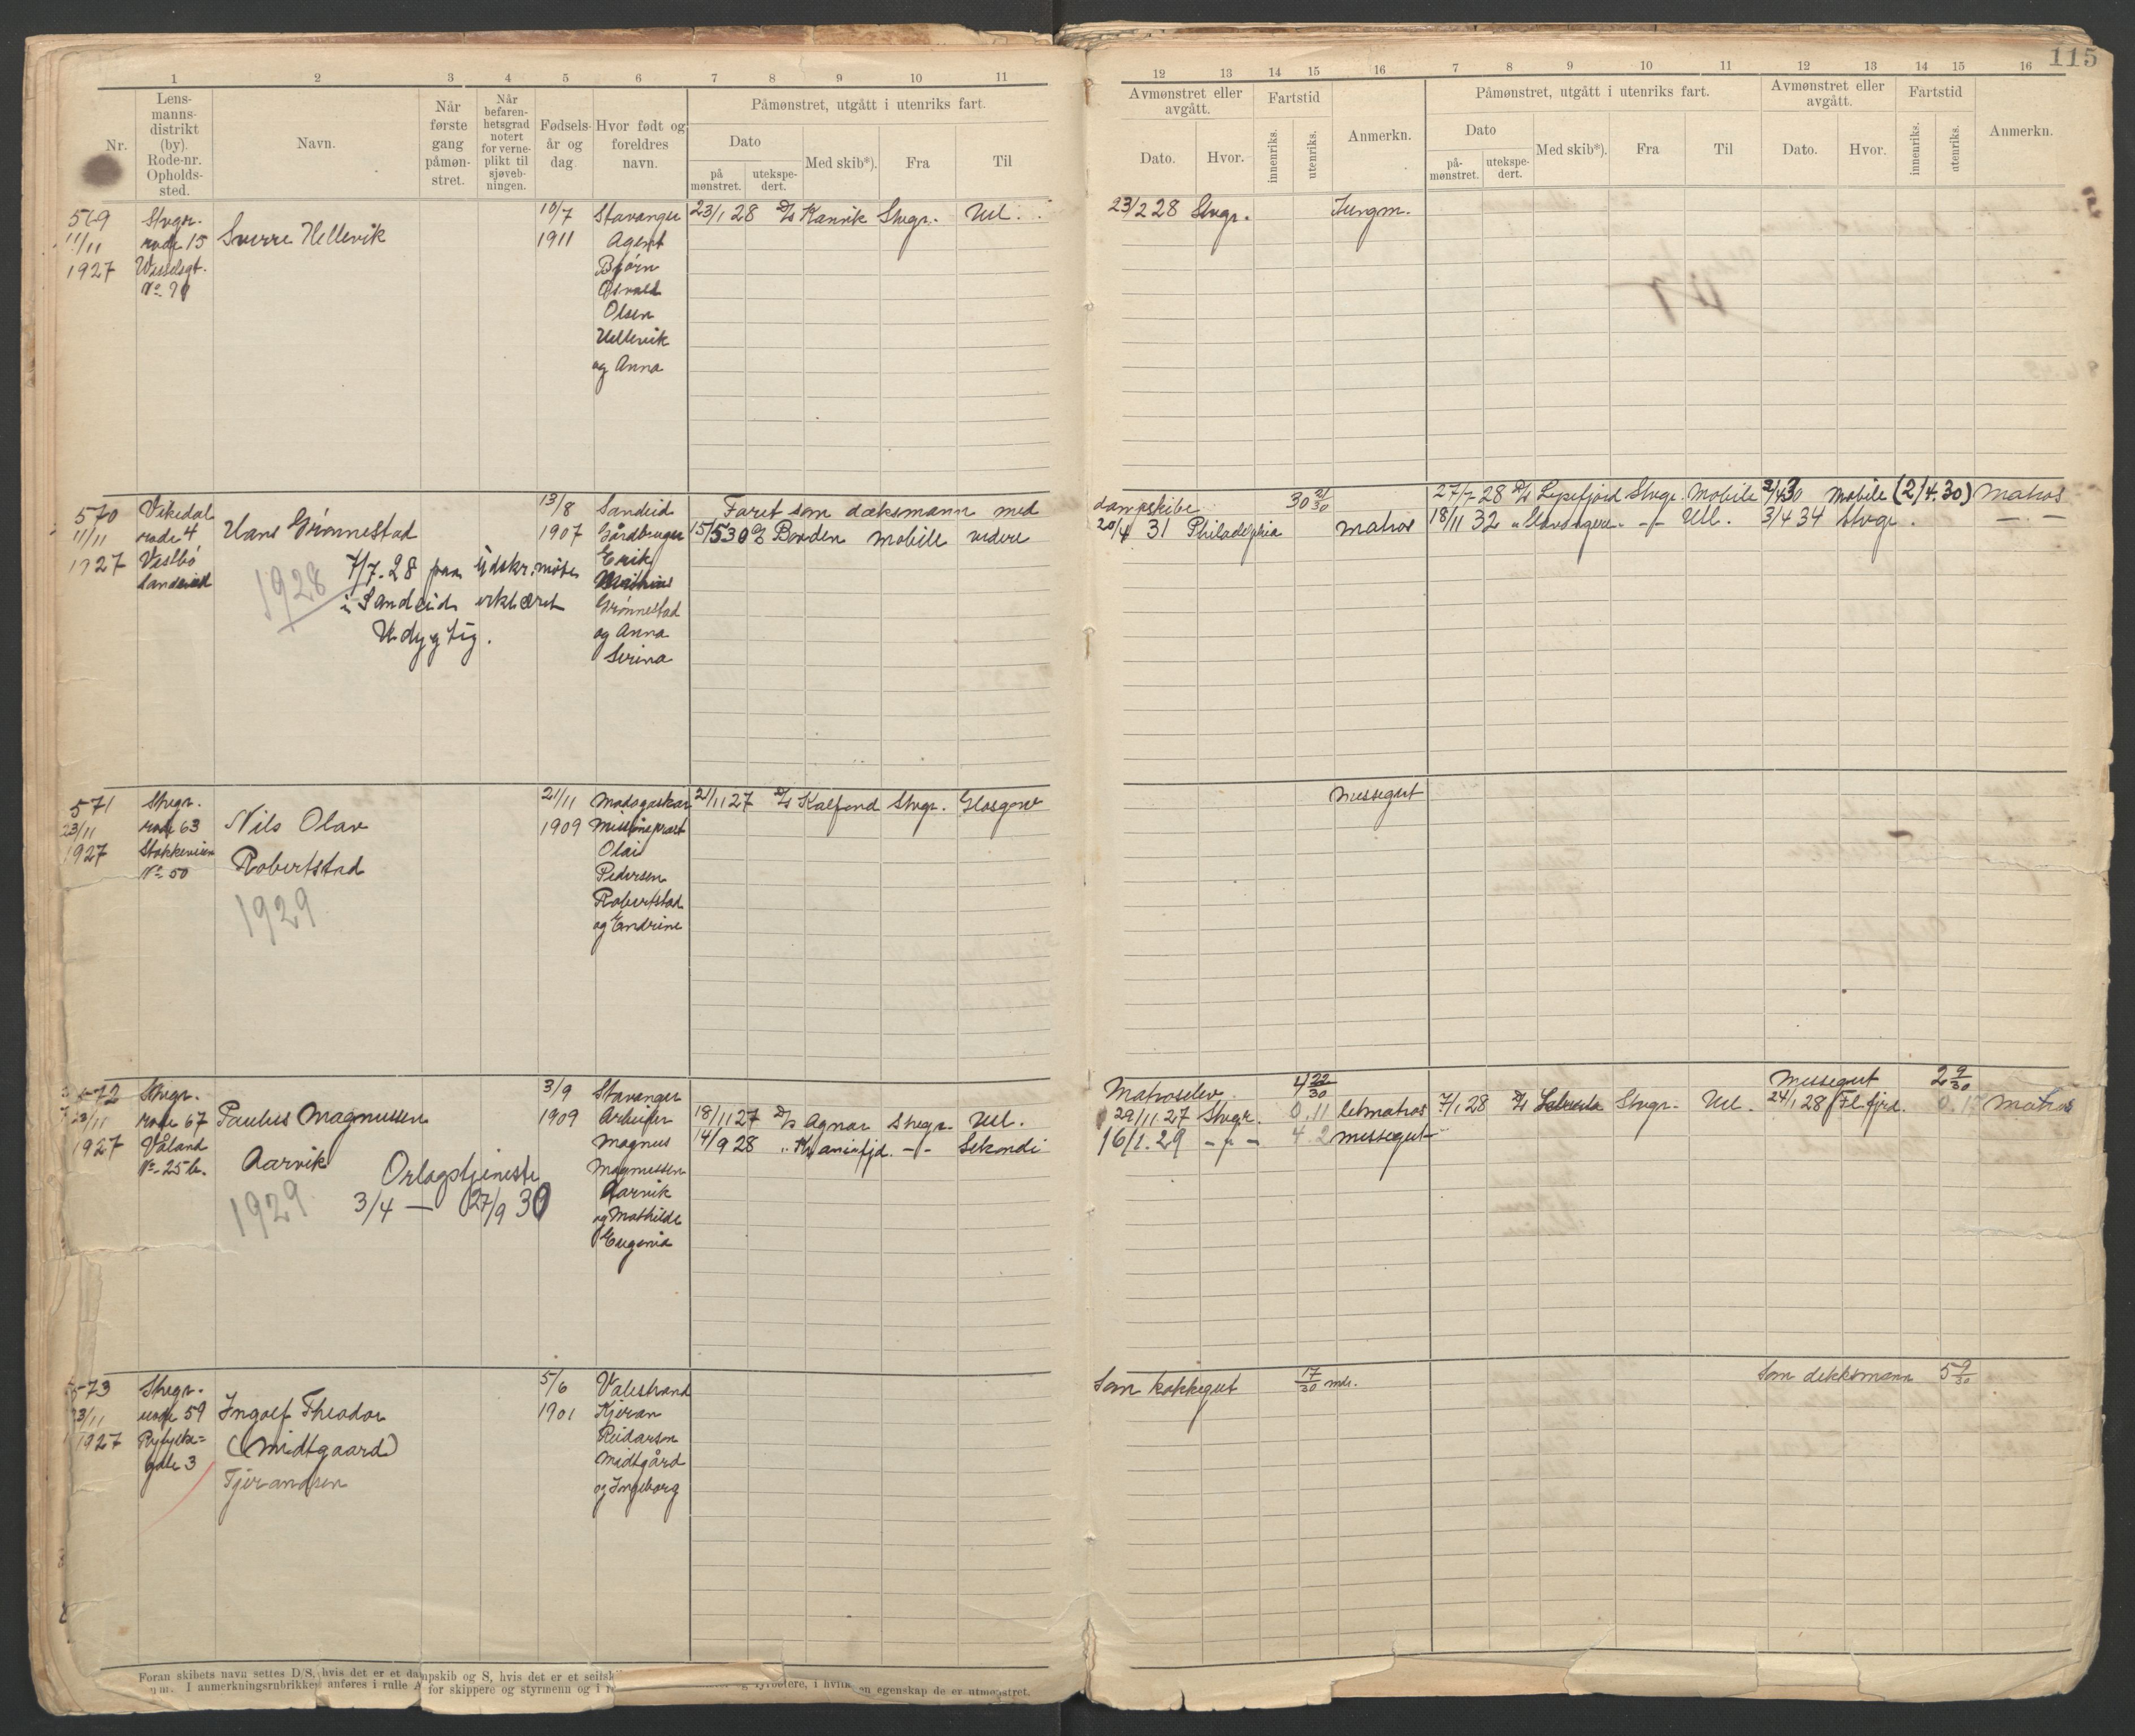 115
1 2 3 4 5 6 7 8 9 10 11
12 13 14 15 16 7 8 9 10 11 12 13 14 15 16
Nr.
Lens-
manns-
distrikt
(by).
Rode-nr.
Opholds-
sted.
Navn.
Når
første
gang
påmøn-
stret.
Når
befaren-
hetsgrad
notert
for verne-
plikt til
sjøveb-
ningen.
Fødsels-
år og
dag
Hvor født og
foreldres
navn.
Påmønstret, utgått i utenriks fart.
Dato
på
mønstret.
utekspe-
dert.
Med skib*).
Fra
Til
Avmønstret eller
avgått.
Dato.
Hvor.
Fartstid
innenriks.
utenriks.
Anmerkn.
Påmønstret, utgått i utenriks fart.
Dato
på-
mønstret.
utekspe-
dert.
Med skib*).
Fra
Til
Avmønstret eller
avgått.
Dato.
Hvor.
Fartstid
innenriks.
utenriks.
Anmerkn.
569
11/11
1927
Stvgr.
rode 15
Wesselsgt.
Sverre Hellevik
10/7
1911
Stavanger
Agent
Bjørn
Osvald
Olsen
Hellevik
og Anna
23/1 28 D/S Kanvik Stvgr. Utl.
23/2 28 Stvgr. Jungm.
570
11/11
1927
Vikedal
rode 4
Vestbø
Sandeid
Hans Grønnestad
1928
7/7-28 paa Udskr. møte
i Sandeid erklæret
Udygtig.
13/8
1907
Sandeid
Gårdbruger
Erik
Mathias
Grønnestad
og Anna
Serina
Faret som dæksmann med
15/5 30 D/S Borden Mobile videre
dampskibe 30 21/30
20/4 31 Philadelphia Matros
27/7 28 D/S Lysefjord Stvgr. Mobile 2/4 30 Mobile (2/4.30) Matros
18/11 32 " Stavangeren -"- Utl. 3/4 34 Stvgr. -"-
571
23/11
1927
Stvgr.
rode 63
Stokkeveien
No 50
Nils Olav
Robertstad
1929
21/11
1909
Madagaskar
Missionsprest
Olai
Pedersen
Robertstad
og Endrine
21/11 27 D/S Kalfond Stvgr. Glasgow
Messegut
572
23/11
1927
Stvgr.
rode 67
Våland
No 25 b.
Paulus Magnussen
Aarvik
1929
Orlogstjeneste
3/4 — 27/9 30
3/9
1909
Stavanger
Arbeider
Magnus
Magnussen
Aarvik
og Mathilde
Eugenia
18/11 27 D/S Agnar Stvgr. Utl.
14/9 28 " Kraniafjd. -"- Sekondi
Matroselev 4 22/30
29/11 27 Stvgr. 0.11 letmatros
16/1.29 -"- 4.2 messegut
Messegut 2 9/30
7/1 28 D/S Stvgr. Utl. 24/1 28 Fl.fjrd. 0.17 Matros
573
23/11
1927
Stvgr.
rode 59
Ryfylke=
gate 3
Ingolf Theodor
(Midtgaard)
Tjerandsen
5/6
1901
Valestrand
Kjeran
Reidarson
Midtgård
og Ingeborg
Som kokkegut 17/30 mdr.
Som dekksmann 5 9/30
Foran skibets navn settes D/S, hvis det er et dampskib og S, hvis det er et seilsk
I anmerkningsrubrikken anføres i rulle A for skippere og styrmenn og i
fyrbøtere, i hvilken egenskap de er utmønstret.